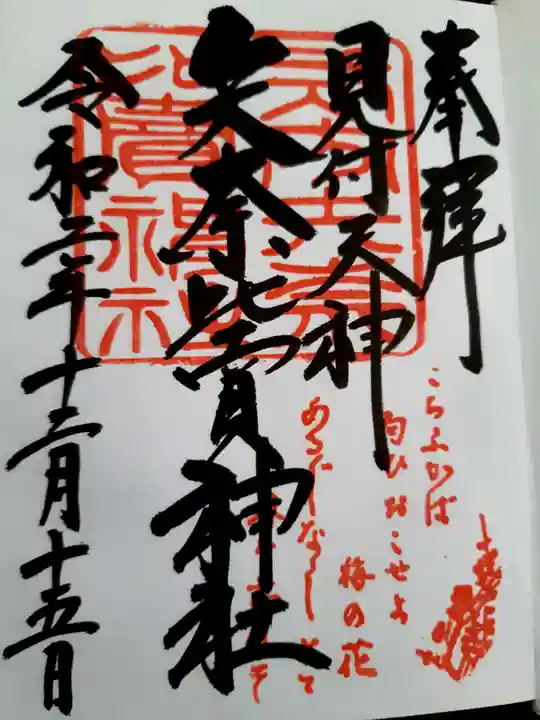 奉拝
見付天神
矢奈比賣神社
令和二年十二月十五日
こちふかば
匂ひおこせよ
梅の花
あるじなしとて